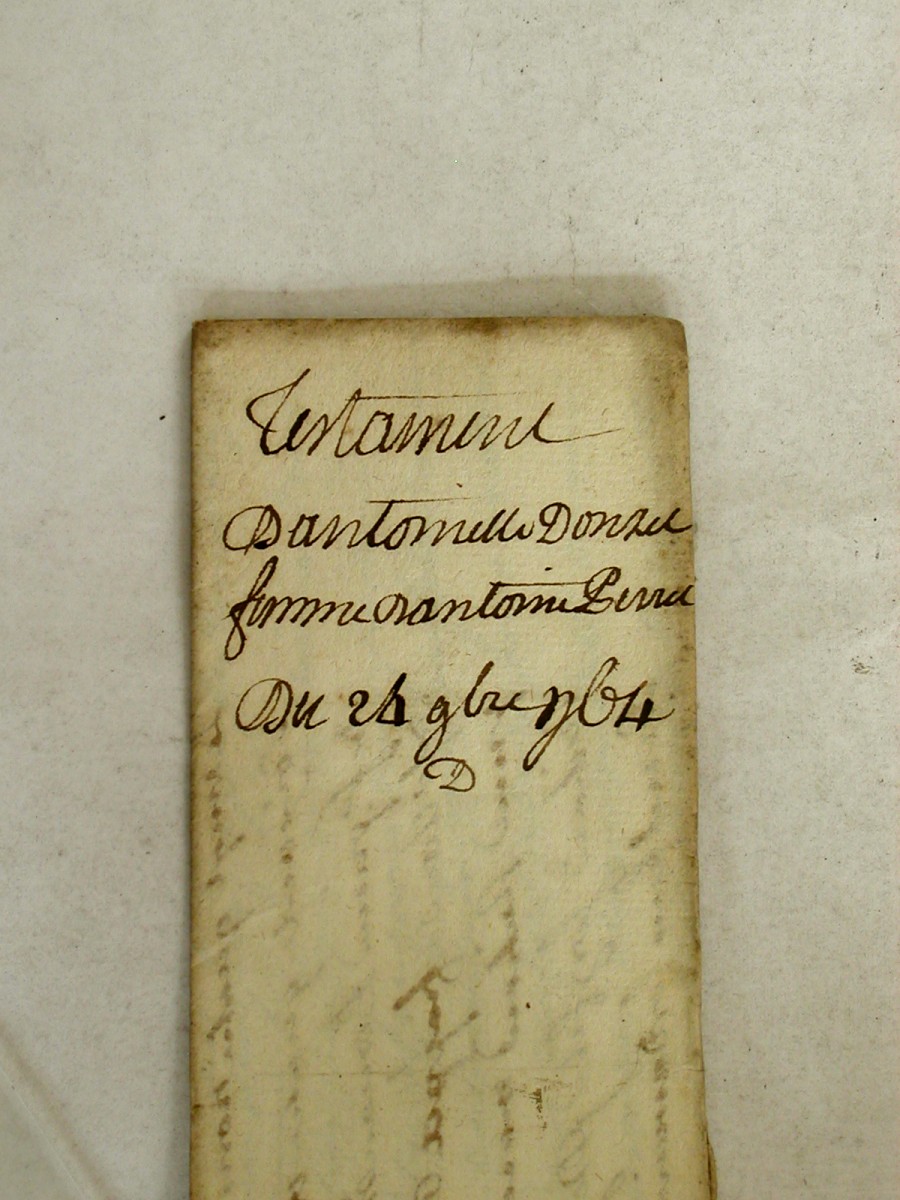 Testament
Dantoinette Donzel
femme dantoine Perret
Du 24 9bre 1764
D